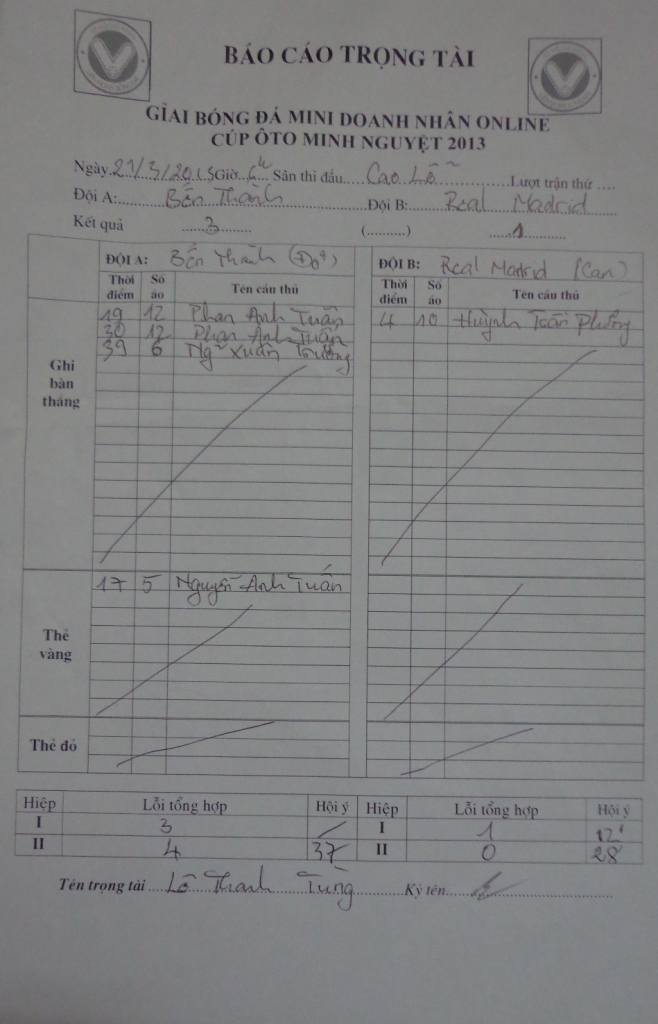 BÁO CÁO TRỌNG TÀI
GIẢI BÓNG ĐÁ MINI DOANH NHÂN ONLINE
CÚP ÔTO MINH NGUYỆT 2013
Ngày 21/3/2013 Giờ Sân thi đấu Cao Lỗ Lượt trận thứ ....
Đội A: Bến Thành Đội B: Real Madrid
Kết quả 3 (..........) 1
ĐỘI A: Bến Thành (Đỏ) ĐỘI B: Real Madrid (Cam)
Thời điểm Số áo Tên cầu thủ Thời điểm Số áo Tên cầu thủ
Ghi bàn thắng
19 12 Phan Anh Tuấn 4 10 Huỳnh Toàn Phương
30 12 Phan Anh Tuấn
39 6 Ngỹ Xuân Trường
Thẻ vàng
17 5 Nguyễn Anh Tuấn
Thẻ đỏ
Hiệp Lỗi tổng hợp Hội ý Hiệp Lỗi tổng hợp Hội ý
I 3 I 1 12'
II 4 37 II 0 28'
Tên trọng tài Lô Thanh Tùng Ký tên